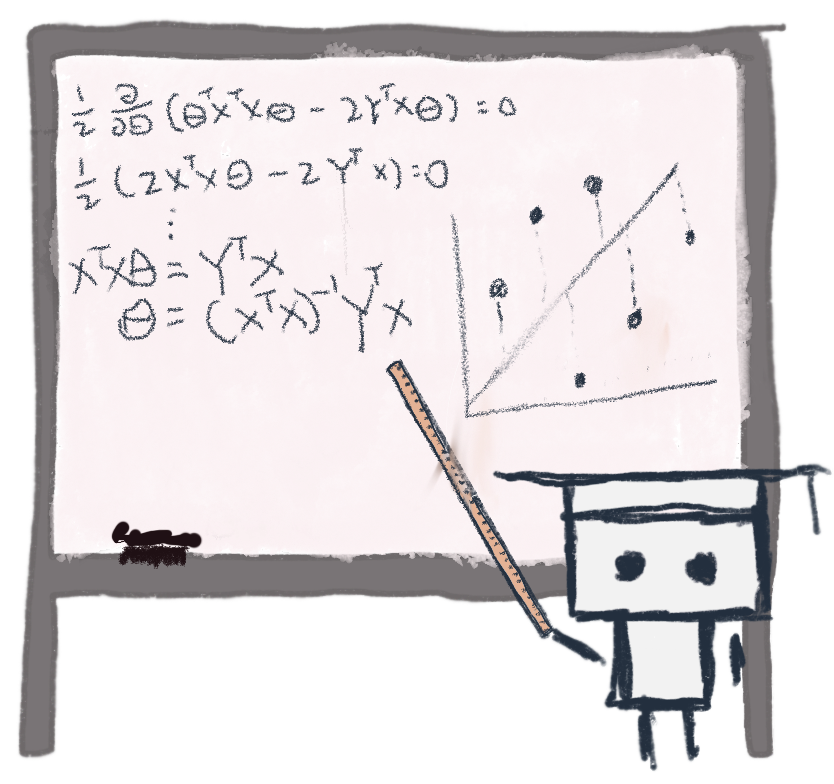 ½ ∂/∂θ (θᵀXᵀXθ - 2YᵀXθ) = 0
½ (2XᵀXθ - 2Yᵀx) = 0
⋮
XᵀXθ = YᵀX
θ = (XᵀX)⁻¹YᵀX